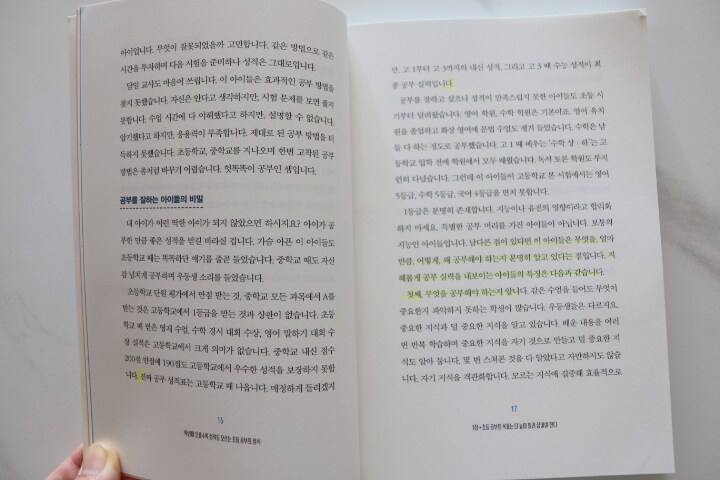 아이입니다. 무엇이 잘못되었을까 고민합니다. 같은 방법으로 같은
시간을 투자하며 다음 시험을 준비하나 성적은 그대로입니다.
담임 교사도 마음이 쓰입니다. 이 아이들은 효과적인 공부 방법을
찾지 못했습니다. 자신은 안다고 생각하지만, 시험 문제를 보면 풀지
못합니다. 수업 시간에 다 이해했다고 하지만, 설명할 수 없습니다.
암기했다고 하지만, 응용력이 부족합니다. 제대로 된 공부 방법을 터
득하지 못했습니다. 초등학교, 중학교를 지나오며 한번 고착된 공부
방법은 좀처럼 바꾸기 어렵습니다. 헛똑똑이 공부인 셈입니다.
공부를 잘하는 아이들의 비밀
내 아이가 이런 딱한 아이가 되지 않았으면 하시지요? 아이가 공
부한 만큼 좋은 성적을 받길 바라실 겁니다. 가슴 아픈 이 아이들도
초등학교 때는 똑똑하단 얘기를 줄곧 들었습니다. 중학교 때도 자신
감 넘치게 공부하며 우등생 소리를 들었습니다.
초등학교 단원 평가에서 만점 받는 것, 중학교 모든 과목에서 A를
받는 것은 고등학교에서 1등급을 받는 것과 상관이 없습니다. 초등
학교 때 받은 영재 수업, 수학 경시 대회 수상, 영어 말하기 대회 수
상 실적은 고등학교에서 크게 의미가 없습니다. 중학교 내신 점수
200점 만점에 190점도 고등학교에서 우수한 성적을 보장하지 못합
니다. 진짜 공부 성적표는 고등학교 때 나옵니다. 매정하게 들리겠지
16
학년이 오를수록 성적도 오르는 초등 공부의 정석
만, 고 1부터 고 3까지의 내신 성적, 그리고 고 3 때 수능 성적이 최
종 공부 실력입니다.
공부를 잘하고 싶으나 성적이 만족스럽지 못한 아이들도 초등 시
기부터 달려왔습니다. 영어 학원, 수학 학원은 기본이죠. 영어 유치
원을 졸업하고 화상 영어에 문법 수업도 챙겨 들었습니다. 수학은 남
들 다 하는 정도로 공부했습니다. 고 1 때 배우는 '수학 상·하'는 고
등학교 입학 전에 학원에서 모두 배웠습니다. 독서 토론 학원도 부지
런히 다녔습니다. 그런데 이 아이들이 고등학교 본 시험에서는 영어
5등급, 수학 5등급, 국어 4등급을 면치 못합니다.
1등급은 분명히 존재합니다. 지능이나 유전의 영향이라고 합리화
하지 마세요. 특별한 공부 머리를 가진 아이들이 아닙니다. 보통의
지능인 아이들입니다. 남다른 점이 있다면 이 아이들은 무엇을, 얼마
만큼, 어떻게, 왜 공부해야 하는지 분명히 알고 있다는 점입니다. 지
혜롭게 공부 실력을 내보이는 아이들의 특징은 다음과 같습니다.
첫째, 무엇을 공부해야 하는지 압니다. 같은 수업을 들어도 무엇이
중요한지 파악하지 못하는 학생이 많습니다. 우등생들은 다르지요.
중요한 지식과 덜 중요한 지식을 알고 있습니다. 배운 내용을 여러
번 반복 학습하며 중요한 지식을 자기 것으로 만들고 덜 중요한 지
식도 알아 둡니다. 몇 번 스쳐본 것을 다 알았다고 자만하지도 않습
니다. 자기 지식을 객관화합니다. 모르는 지식에 집중해 효율적으로
17